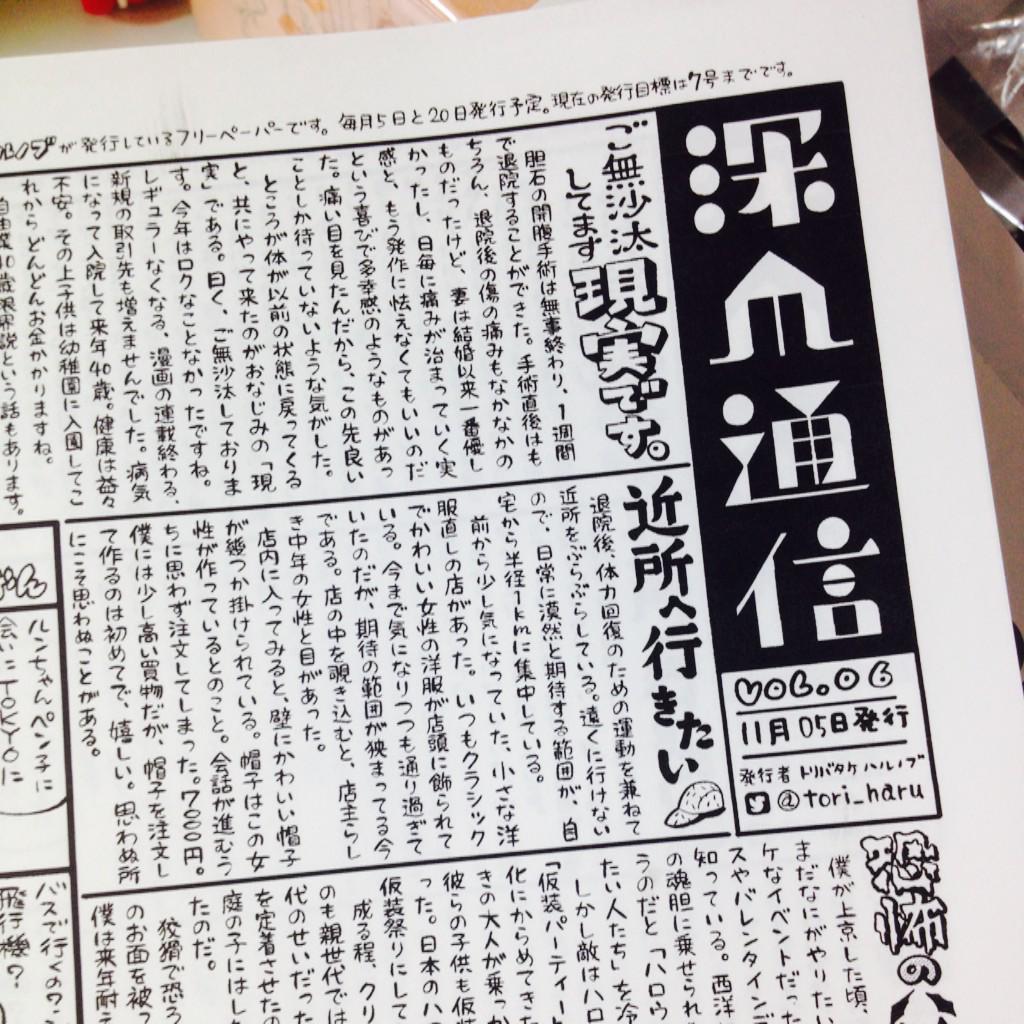 が発行しているフリーペーパーです。毎月5日と20日発行予定。現在の発行目標は7号までです。
深山通信
VOL.06
11月05日発行
発行者 トリバタケハルノブ
@tori_haru
ご無沙汰
してます
現実です。
胆石の開腹手術は無事終わり、1週間
で退院することができた。手術直後はも
ちろん、退院後の傷の痛みもなかなかの
ものだったけど、妻は結婚以来一番優し
かったし、日毎に痛みが治まっていく実
感と、もう発作に怯えなくてもいいのだ
という喜びで多幸感のようなものがあっ
た。痛い目を見たんだから、この先良い
ことしか待っていないような気がした。
ところが体が以前の状態に戻ってくる
と、共にやって来たのがおなじみの「現
実」である。曰く、ご無沙汰しておりま
す。今年はロクなことなかったですね。
レギュラーなくなる、漫画の連載終わる、
新規の取引先も増えませんでした。病気
になって入院して来年40歳。健康は益々
不安。その上子供は幼稚園に入園してこ
れからどんどんお金かかりますね。
自由業40歳限界説という話もあります。
近所へ行きたい
退院後、体力回復のための運動を兼ねて
近所をぶらぶらしている。遠くに行けない
ので、日常に漠然と期待する範囲が、自
宅から半径1kmに集中している。
前から少し気になっていた、小さな洋
服直しの店があった。いつもクラシック
でかわいい女性の洋服が店頭に飾られて
いる。今まで気になりつつも通り過ぎて
いたのだが、期待の範囲が狭まってる今
である。店の中を覗き込むと、店主らし
き中年の女性と目があった。
店内に入ってみると、壁にかわいい帽子
が幾つか掛けられている。帽子はこの女
性が作っているとのこと。会話が進むう
ちに思わず注文してしまった。7000円。
僕には少し高い買物だが、帽子を注文し
て作るのは初めてで、嬉しい。思わぬ所
にこそ思わぬことがある。
恐怖の
僕が上京した頃、
まだなにがやりたい
ケなイベントだった
スやバレンタインデ
知っている。西洋
の魂胆に乗せられ
うのだと「ハロウ
たい人たち」を冷
しかし敵はハロ
「仮装パーティー
化にからめてきた
きの大人が乗っか
彼らの子供も仮装
った。日本のハ
仮装祭りにして
成る程、クリ
のも親世代では
代のせいだった
を定着させたの
庭の子にはし
たのだ。
狡猾で恐ろ
のお面を被っ
僕は来年耐え
ちゃん
ルンちゃんペン子に
会いにTOKYOに
バスで行くのワン
飛行機？